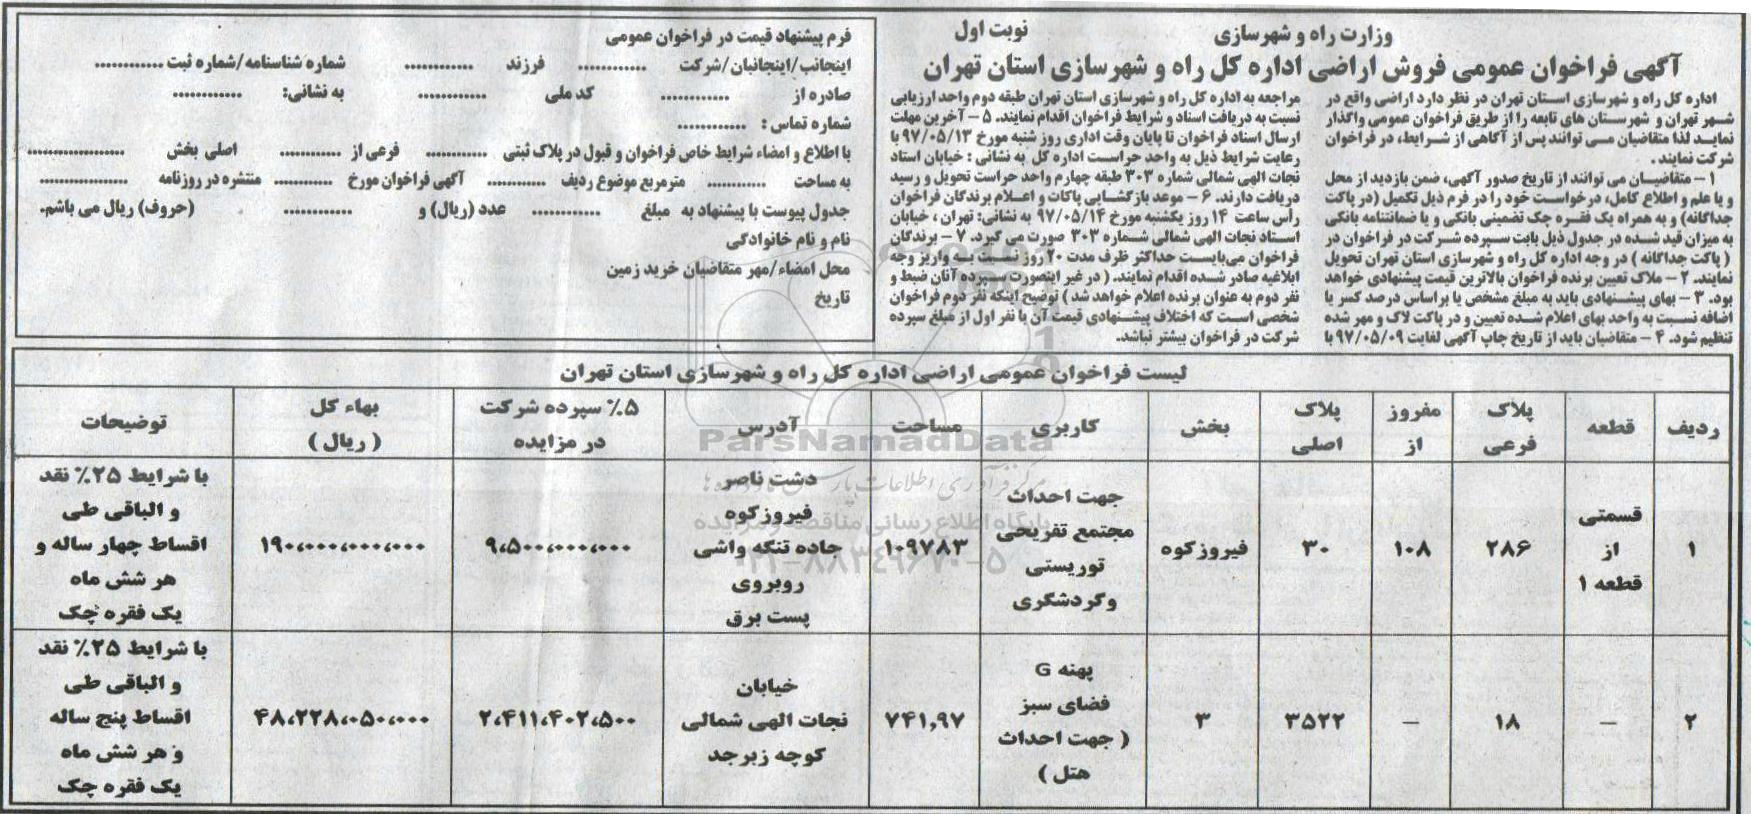 وزارت راه و شهرسازی
نوبت اول
آگهی فراخوان عمومی فروش اراضی اداره کل راه و شهرسازی استان تهران
اداره کل راه و شهرسازی استان تهران در نظر دارد اراضی واقع در
شهر تهران و شهرستان های تابعه را از طریق فراخوان عمومی واگذار
نماید لذا متقاضیان می توانند پس از آگاهی از شرایط، در فراخوان
شرکت نمایند .
۱ – متقاضیان می توانند از تاریخ صدور آگهی، ضمن بازدید از محل
و با علم و اطلاع کامل، درخواست خود را در فرم ذیل تکمیل (در پاکت
جداگانه) و به همراه یک فقره چک تضمینی بانکی و یا ضمانتنامه بانکی
به میزان قید شده در جدول ذیل بابت سپرده شرکت در فراخوان در
( پاکت جداگانه ) در وجه اداره کل راه و شهرسازی استان تهران تحویل
نمایند. ۲ – ملاک تعیین برنده فراخوان بالاترین قیمت پیشنهادی خواهد
بود. ۳ – بهای پیشنهادی باید به مبلغ مشخص یا براساس درصد کسر یا
اضافه نسبت به واحد بهای اعلام شده تعیین و در پاکت لاک و مهر شده
تنظیم شود. ۴ – متقاضیان باید از تاریخ چاپ آگهی لغایت ۹۷/۰۵/۰۹ با
مراجعه به اداره کل راه و شهرسازی استان تهران طبقه دوم واحد ارزیابی
نسبت به دریافت اسناد و شرایط فراخوان اقدام نمایند. ۵ – آخرین مهلت
ارسال اسناد فراخوان تا پایان وقت اداری روز شنبه مورخ ۹۷/۰۵/۱۳ با
رعایت شرایط ذیل به واحد حراست اداره کل به نشانی : خیابان استاد
نجات الهی شمالی شماره ۳۰۳ طبقه چهارم واحد حراست تحویل و رسید
دریافت دارند. ۶ – موعد بازگشایی پاکات و اعلام برندگان فراخوان
رأس ساعت ۱۴ روز یکشنبه مورخ ۹۷/۰۵/۱۴ به نشانی: تهران ، خیابان
استاد نجات الهی شمالی شماره ۳۰۳ صورت می گیرد. ۷ – برندگان
فراخوان می‌بایست حداکثر ظرف مدت ۲۰ روز نسبت به واریز وجه
ابلاغیه صادر شده اقدام نمایند. ( در غیر اینصورت سپرده آنان ضبط و
نفر دوم به عنوان برنده اعلام خواهد شد ) توضیح اینکه نفر دوم فراخوان
شخصی است که اختلاف پیشنهادی قیمت آن با نفر اول از مبلغ سپرده
شرکت در فراخوان بیشتر نباشد.
فرم پیشنهاد قیمت در فراخوان عمومی
اینجانب/اینجانبان/شرکت ............ فرزند ............ شماره شناسنامه/شماره ثبت ............
صادره از ............ کد ملی ............ به نشانی: ............
شماره تماس : ............
با اطلاع و امضاء شرایط خاص فراخوان و قبول در پلاک ثبتی ............ فرعی از ............ اصلی بخش ............
به مساحت ............ مترمربع موضوع ردیف ............ آگهی فراخوان مورخ ............ منتشره در روزنامه ............
جدول پیوست با پیشنهاد به مبلغ ............ عدد (ریال) و ............ (حروف) ریال می باشم.
نام و نام خانوادگی
محل امضاء/مهر متقاضیان خرید زمین
تاریخ
لیست فراخوان عمومی اراضی اداره کل راه و شهرسازی استان تهران
ردیف | قطعه | پلاک فرعی | مفروز از | پلاک اصلی | بخش | کاربری | مساحت | آدرس | ۵٪ سپرده شرکت در مزایده | بهاء کل ( ریال ) | توضیحات
۱ | قسمتی از قطعه ۱ | ۲۸۶ | ۱۰۸ | ۳۰ | فیروزکوه | جهت احداث مجتمع تفریحی توریستی وگردشگری | ۱۰۹۷۸۳ | دشت ناصر فیروزکوه جاده تنگه واشی روبروی پست برق | ۹،۵۰۰،۰۰۰،۰۰۰ | ۱۹۰،۰۰۰،۰۰۰،۰۰۰ | با شرایط ۲۵٪ نقد و الباقی طی اقساط چهار ساله و هر شش ماه یک فقره چک
۲ | – | ۱۸ | – | ۳۵۲۲ | ۳ | پهنه G فضای سبز ( جهت احداث هتل ) | ۷۴۱,۹۷ | خیابان نجات الهی شمالی کوچه زبرجد | ۲،۴۱۱،۴۰۲،۵۰۰ | ۴۸،۲۲۸،۰۵۰،۰۰۰ | با شرایط ۲۵٪ نقد و الباقی طی اقساط پنج ساله و هر شش ماه یک فقره چک
ParsNamadData
مرکز فرآوری اطلاعات پارس نماد داده ها
پایگاه اطلاع رسانی مناقصه و مزایده
۰۲۱-۸۸۳۴۹۶۷۰-۵